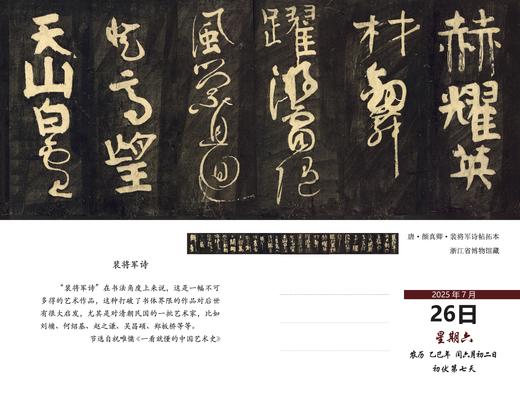 赫耀英
材劍舞
躍游雷隨
風縈且迴
登高望
天山白雲
唐·颜真卿·裴将军诗帖拓本
浙江省博物馆藏
裴将军诗
“裴将军诗”在书法角度上来说，这是一幅不可
多得的艺术作品，这种打破了书体界限的作品对后世
有很大启发，尤其是对清朝民国的一批艺术家，比如
刘墉、何绍基、赵之谦、吴昌硕、郑板桥等等。
节选自祝唯慵《一看就懂的中国艺术史》
2025年7月
26日
星期六
农历 乙巳年 闰六月初二日
初伏第七天